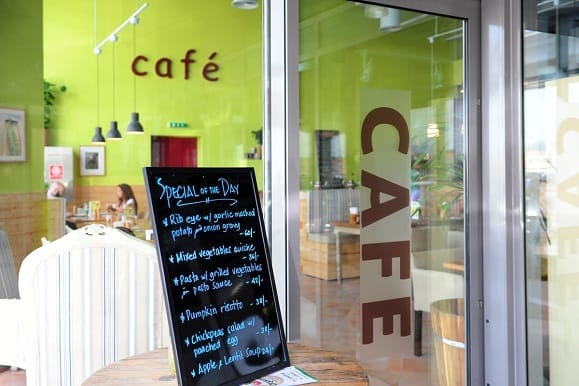 café
CAFE
Special of the Day
* Rib eye w/ garlic mashed
potato onion gravy
-60/-
* Mixed vegetables quiche
- 36/-
* Pasta w/ grilled vegetables
in pasto sauce -45/-
* Pumpkin risotto - 38/-
* Chickpeas salad w/
poached egg - 39/-
* Apple & Lentil Soup 24/-